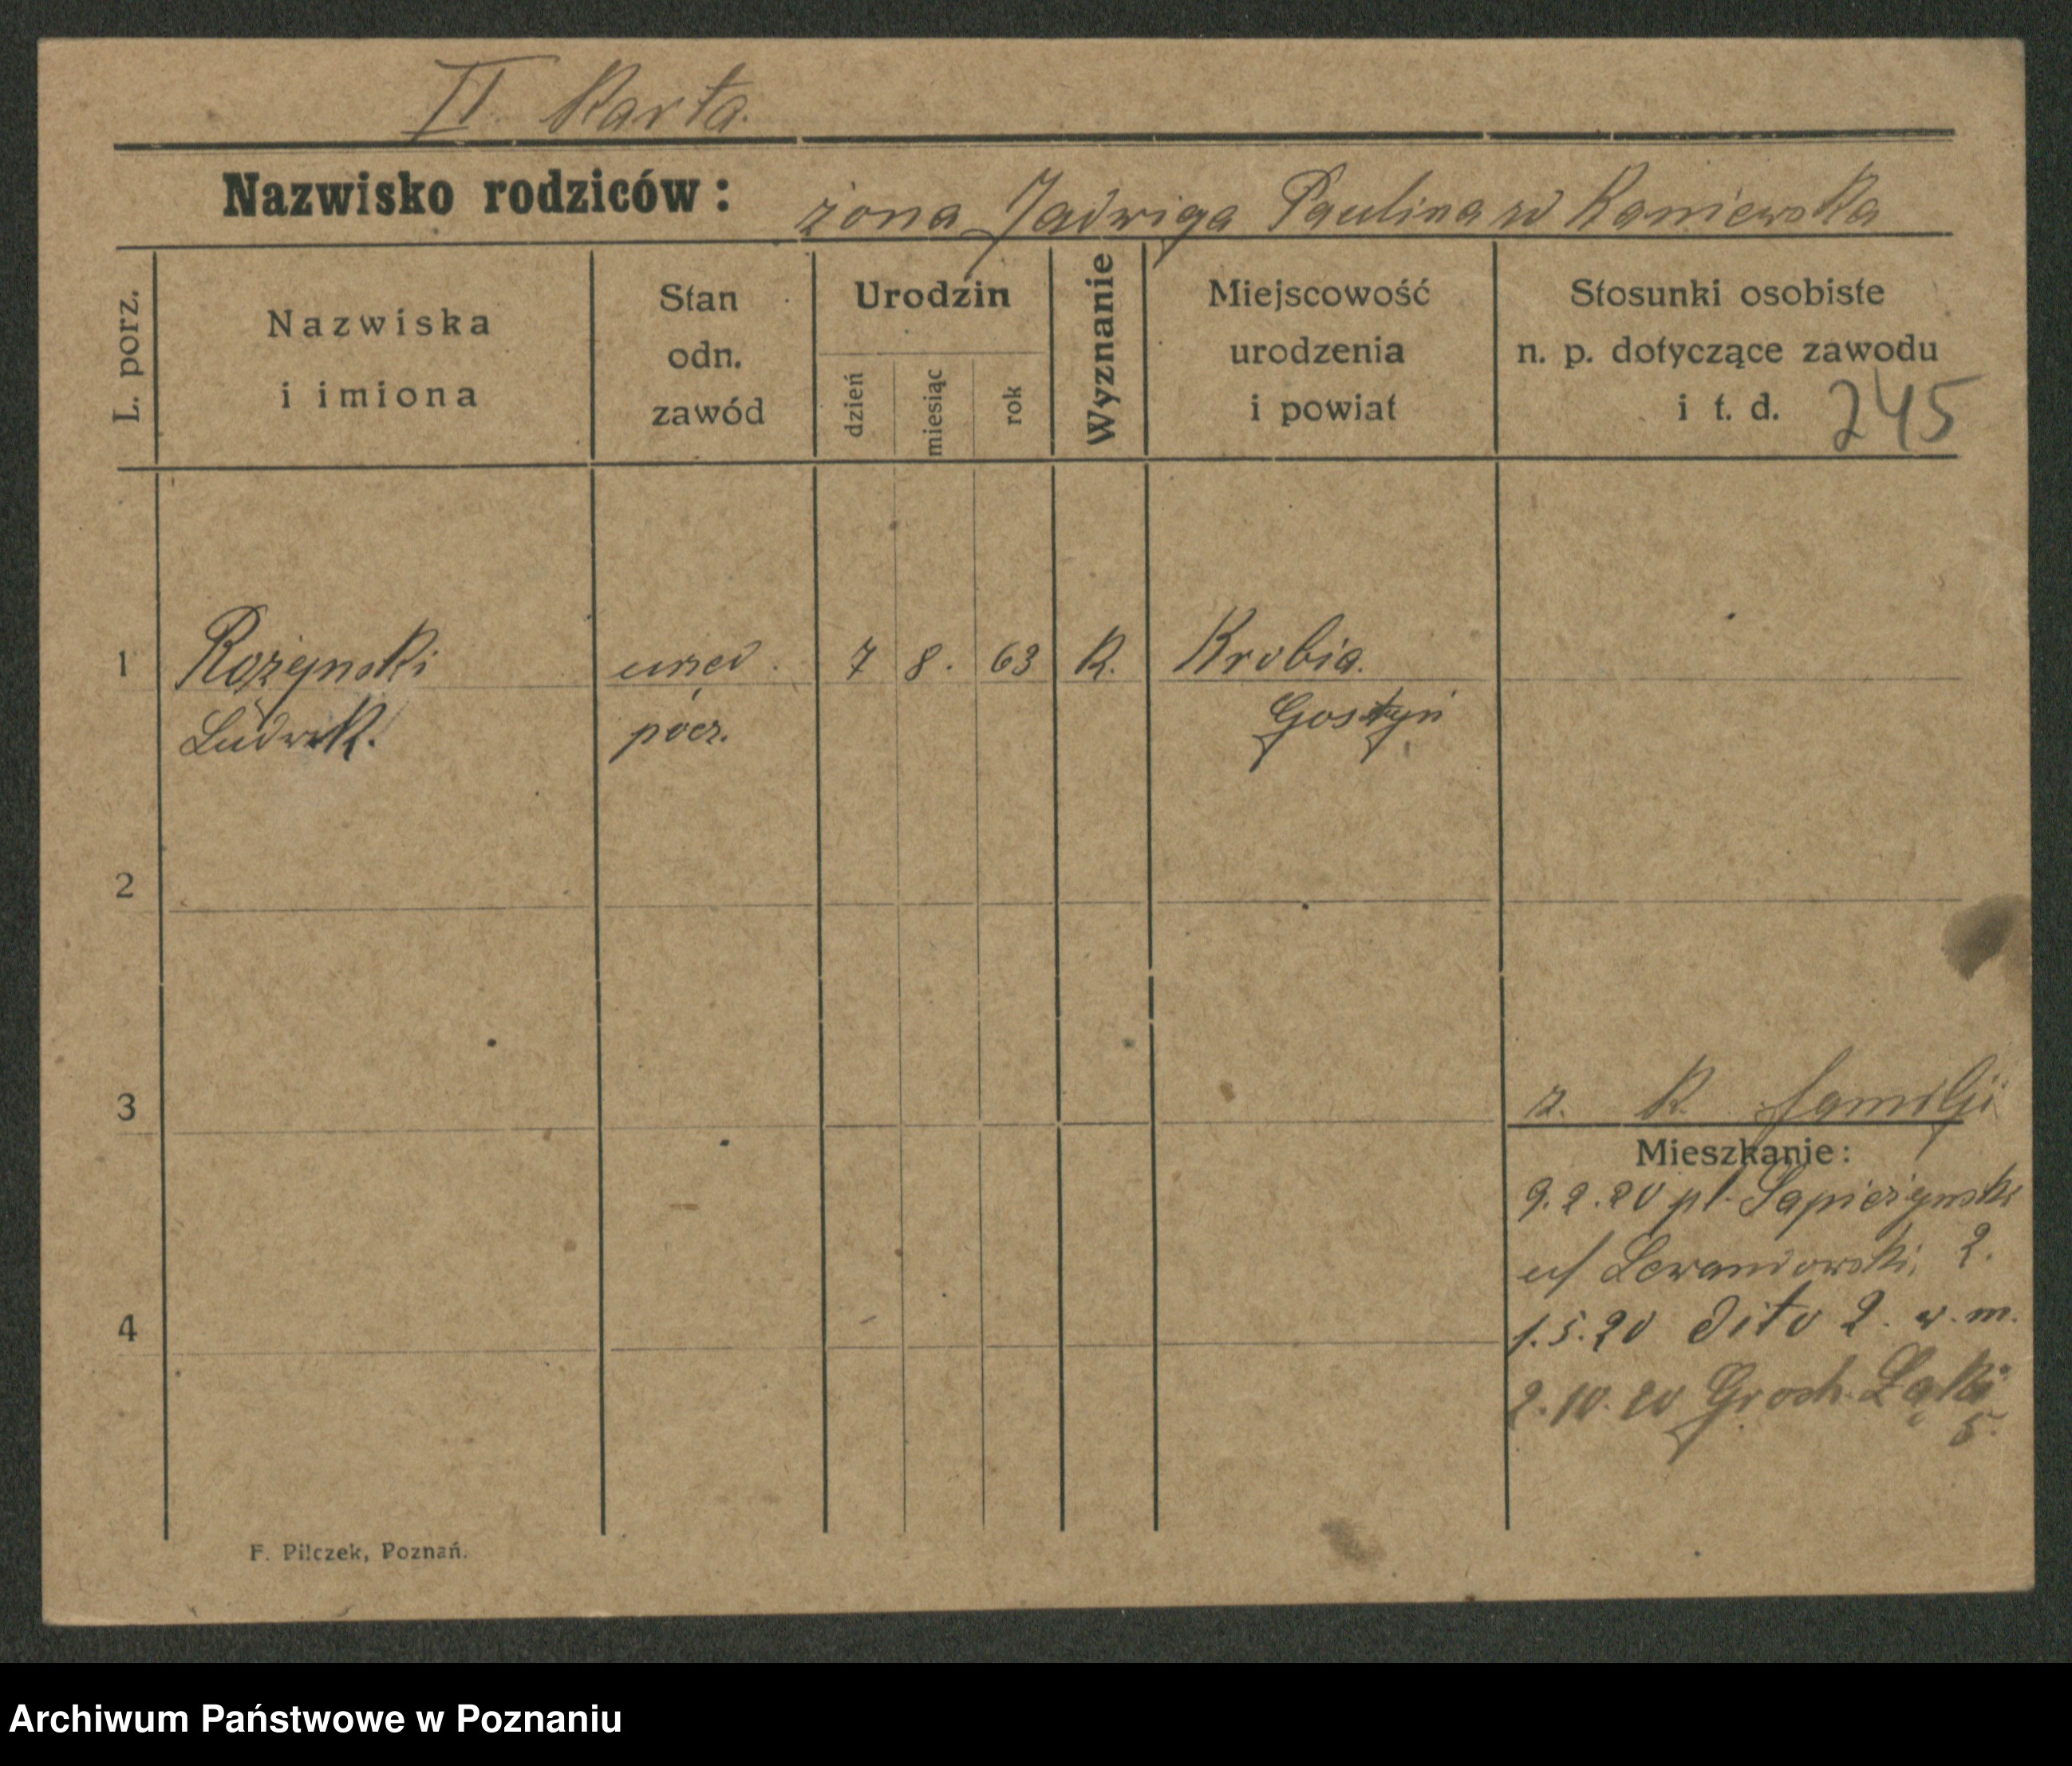 II. Karta.
Nazwisko rodziców: żona Jadwiga Paulina zd Kaniewska
L. porz.
Nazwiska
i imiona
Stan
odn.
zawód
Urodzin
dzień
miesiąc
rok
Wyznanie
Miejscowość
urodzenia
i powiat
Stosunki osobiste
n. p. dotyczące zawodu
i t. d. 245
1 Rożynski urzęd. 7 8. 63 K. Krobia.
Ludwik. pocz. Gostyń
2
3 z. K. familji
Mieszkanie:
9.2.20 pl. Sapieżynski
u/ Lewandowski, 2.
4 1.5.20 dito 2. w. m.
2.10.20 Groch. Łąki
5.
F. Pilczek, Poznań.
Archiwum Państwowe w Poznaniu